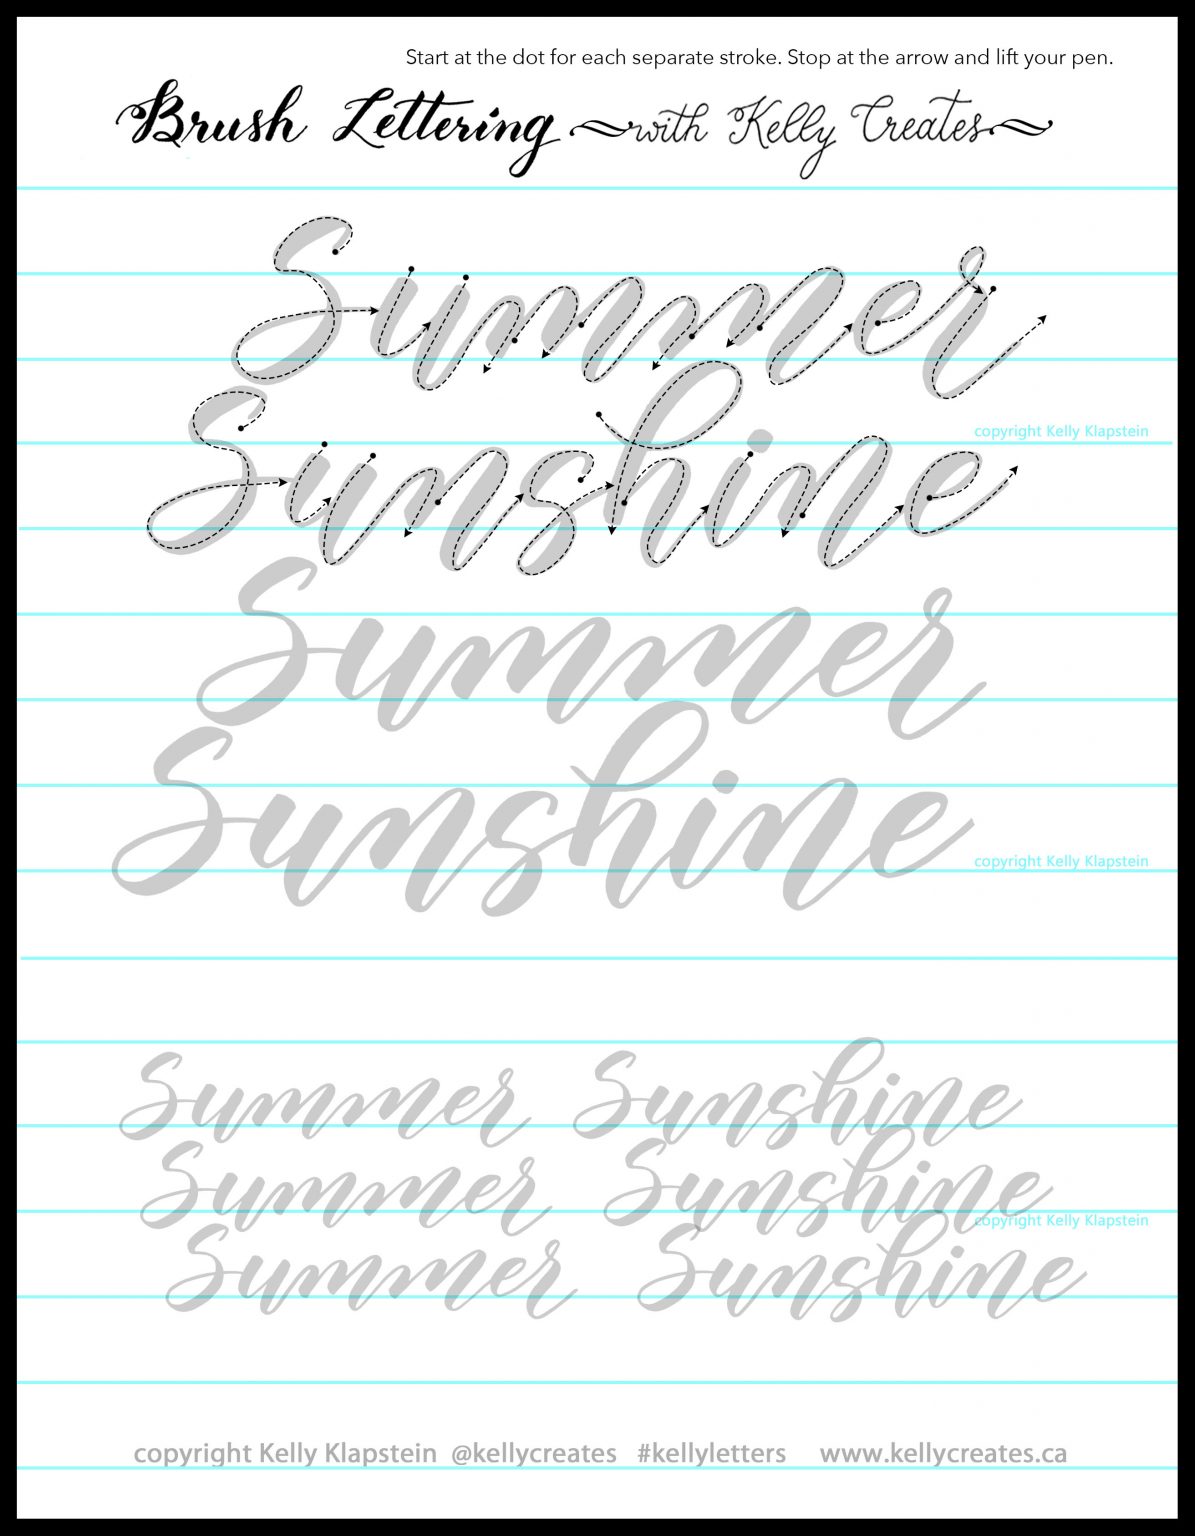 Start at the dot for each separate stroke. Stop at the arrow and lift your pen.
Brush Lettering with Kelly Creates
Summer
copyright Kelly Klapstein
Sunshine
Summer
Sunshine
copyright Kelly Klapstein
Summer Sunshine
Summer Sunshine
copyright Kelly Klapstein
Summer Sunshine
copyright Kelly Klapstein @kellycreates #kellyletters www.kellycreates.ca